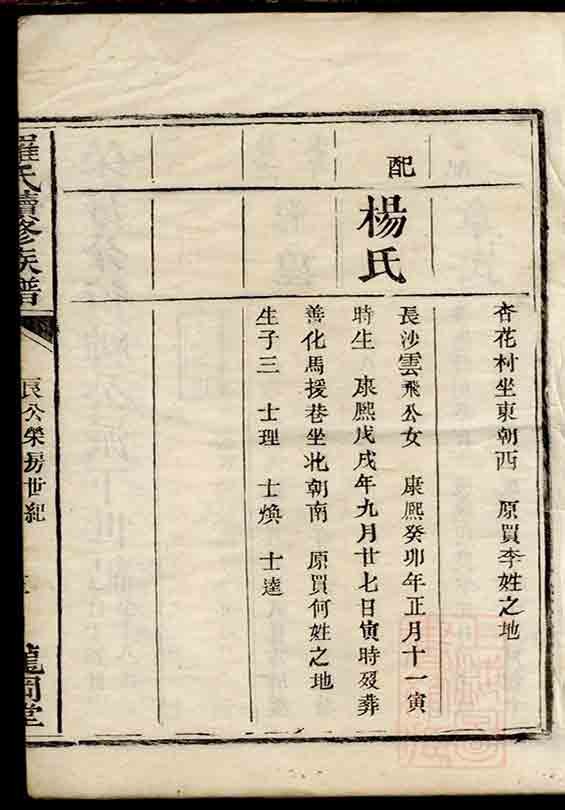 杏花村坐東朝西　原買李姓之地
配
楊氏
長沙雲飛公女　康熙癸卯年正月十一寅
時生　康熙戊戌年九月廿七日寅時歿葬
善化馬援巷坐北朝南　原買何姓之地
生子三　士理　士煥　士逵
羅氏續修族譜
良公榮房世紀
龍岡堂